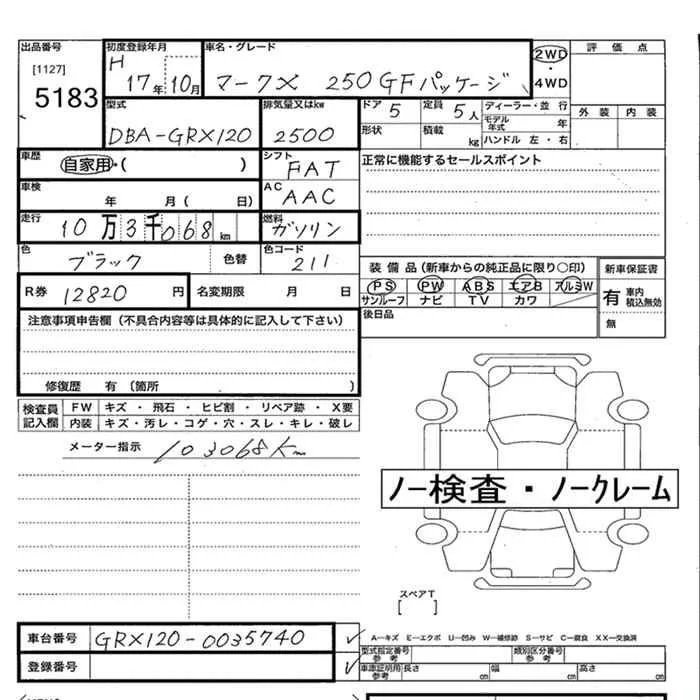 出品番号 初度登録年月 車名・グレード 2WD 評価点
[1127] H 17年10月 マークX 250GFパッケージ ・
5183 4WD
型式 排気量又はkw ドア 5 定員 5人 ディーラー・並 行 外装 内装
DBA-GRX120 2500 形状 積載 kg モデル年式 年
ハンドル 左・右
車歴 自家用・( ) シフト FAT 正常に機能するセールスポイント
車検 年 月( 日) AC AAC
走行 10万3千068km 燃料 ガソリン
色 ブラック 色替 色コード 211
装備品(新車からの純正品に限り○印) 新車保証書
R券 12820円 名変期限 月 日 PS PW ABS エアB アルミW 有 車内積込無効
サンルーフ ナビ TV カワ
注意事項申告欄(不具合内容等は具体的に記入して下さい) 後日品 無
修復歴 有(箇所 )
検査員記入欄 FW キズ・飛石・ヒビ割・リペア跡・X要
内装 キズ・汚レ・コゲ・穴・スレ・キレ・破レ
メーター指示 103068Km
ノー検査・ノークレーム
スペアT
[ ]
車台番号 GRX120-0035740 A―キズ E―エクボ U―凹み W―補修跡 S―サビ C―腐食 XX―交換済
型式指定番号 参考 類別区分番号 参考
登録番号 車庫証明用参考 長さ cm 幅 cm 高さ cm